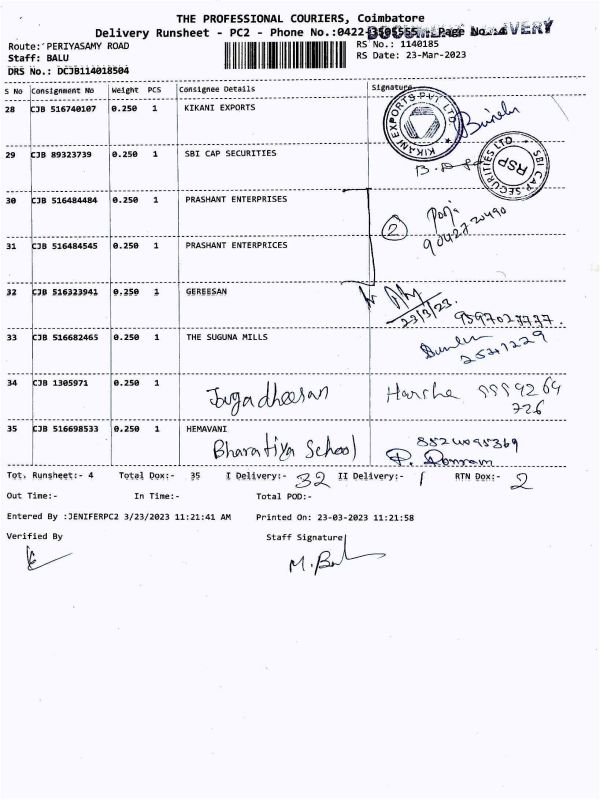 THE PROFESSIONAL COURIERS, Coimbatore
Delivery Runsheet - PC2 - Phone No.:0422-3505555 - Page No.:4
DOCUMENT DELIVERY
Route: PERIYASAMY ROAD RS No.: 1140185
Staff: BALU RS Date: 23-Mar-2023
DRS No.: DCJB114018504
S No Consignment No Weight PCS Consignee Details Signature
28 CJB 516740107 0.250 1 KIKANI EXPORTS
KIKANI EXPORTS PVT LTD
29 CJB 89323739 0.250 1 SBI CAP SECURITIES
SBI CAP SECURITIES LTD. RSP
30 CJB 516484484 0.250 1 PRASHANT ENTERPRISES
2 9042720490
31 CJB 516484545 0.250 1 PRASHANT ENTERPRICES
32 CJB 516323941 0.250 1 GEREESAN
23/3/23. 9597027737.
33 CJB 516682465 0.250 1 THE SUGUNA MILLS
2541229
34 CJB 1305971 0.250 1 Jagadheesan Harsha 9999264
726
35 CJB 516698533 0.250 1 HEMAVANI
Bharatiya School
Tot. Runsheet:- 4 Total Dox:- 35 I Delivery:- 32 II Delivery:- 1 RTN Dox:- 2
Out Time:- In Time:- Total POD:-
Entered By :JENIFERPC2 3/23/2023 11:21:41 AM Printed On: 23-03-2023 11:21:58
Verified By Staff Signature
M. Bal